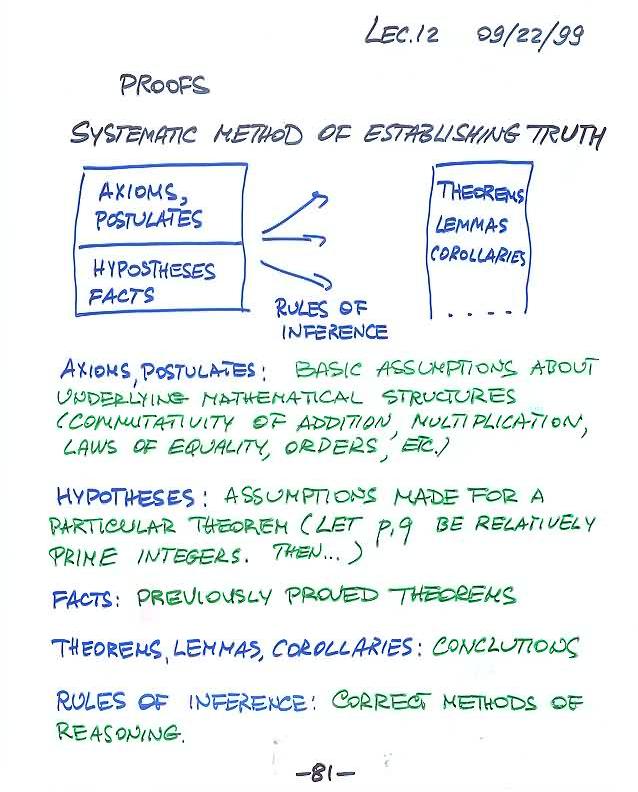 LEC.12 09/22/99
PROOFS
SYSTEMATIC METHOD OF ESTABLISHING TRUTH
AXIOMS,
POSTULATES
HYPOSTHESES
FACTS
RULES OF
INFERENCE
THEOREMS
LEMMAS
COROLLARIES
.....
AXIOMS, POSTULATES: BASIC ASSUMPTIONS ABOUT
UNDERLYING MATHEMATICAL STRUCTURES
(COMMUTATIVITY OF ADDITION, MULTIPLICATION,
LAWS OF EQUALITY, ORDERS, ETC.)
HYPOTHESES: ASSUMPTIONS MADE FOR A
PARTICULAR THEOREM (LET p,q BE RELATIVELY
PRIME INTEGERS. THEN...)
FACTS: PREVIOUSLY PROVED THEOREMS
THEOREMS, LEMMAS, COROLLARIES: CONCLUTIONS
RULES OF INFERENCE: CORRECT METHODS OF
REASONING.
-81-